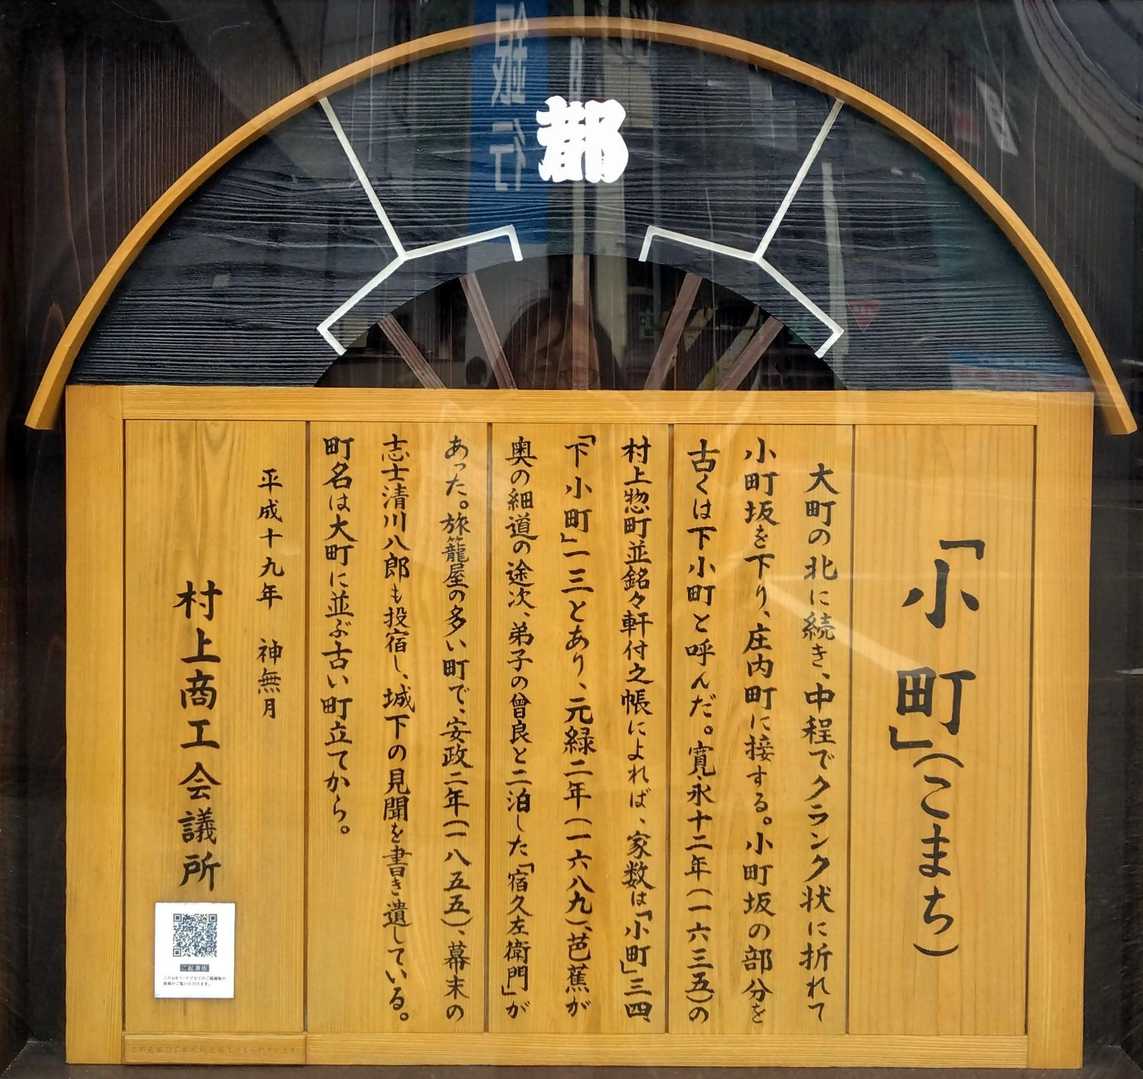 都
「小町」(こまち)
大町の北に続き、中程でクランク状に折れて
小町坂を下り、庄内町に接する。小町坂の部分を
古くは下小町と呼んだ。寛永十二年(一六三五)の
村上惣町並銘々軒付之帳によれば、家数は「小町」三四、
「下小町」一三とあり、元緑二年(一六八九)、芭蕉が
奥の細道の途次、弟子の曽良と二泊した「宿久左衛門」が
あった。旅籠屋の多い町で、安政二年(一八五五)、幕末の
志士清川八郎も投宿し、城下の見聞を書き遺している。
町名は大町に並ぶ古い町立てから。
平成十九年 神無月
村上商工会議所
銀行